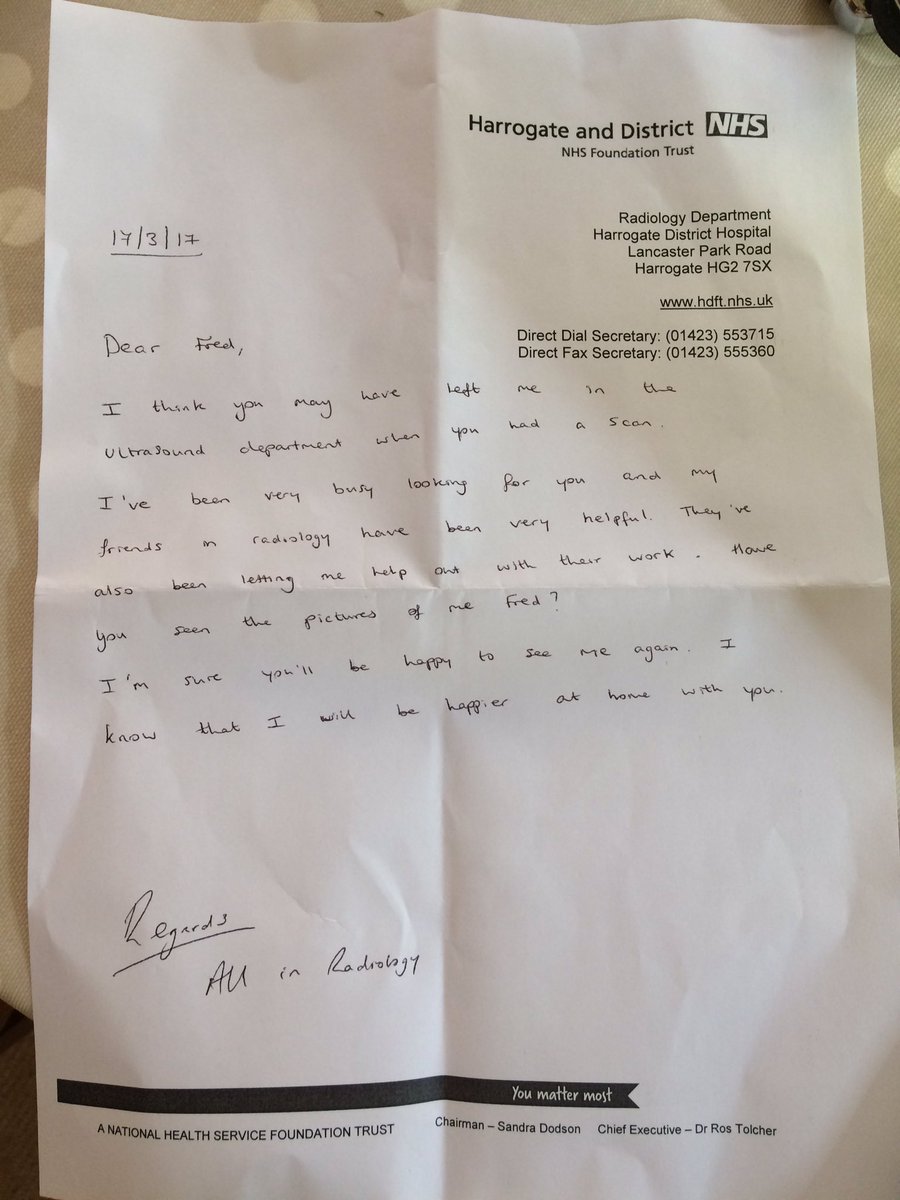 Harrogate and District NHS
NHS Foundation Trust
Radiology Department
Harrogate District Hospital
Lancaster Park Road
Harrogate HG2 7SX
www.hdft.nhs.uk
Direct Dial Secretary: (01423) 553715
Direct Fax Secretary: (01423) 555360
17/3/17
Dear Fred,
I think you may have left me in the
ultrasound department when you had a scan.
I've been very busy looking for you and my
friends in radiology have been very helpful. They've
also been letting me help out with their work. Have
you seen the pictures of me Fred?
I'm sure you'll be happy to see me again. I
know that I will be happier at home with you.
Regards
All in Radiology
You matter most
A NATIONAL HEALTH SERVICE FOUNDATION TRUST
Chairman – Sandra Dodson Chief Executive – Dr Ros Tolcher